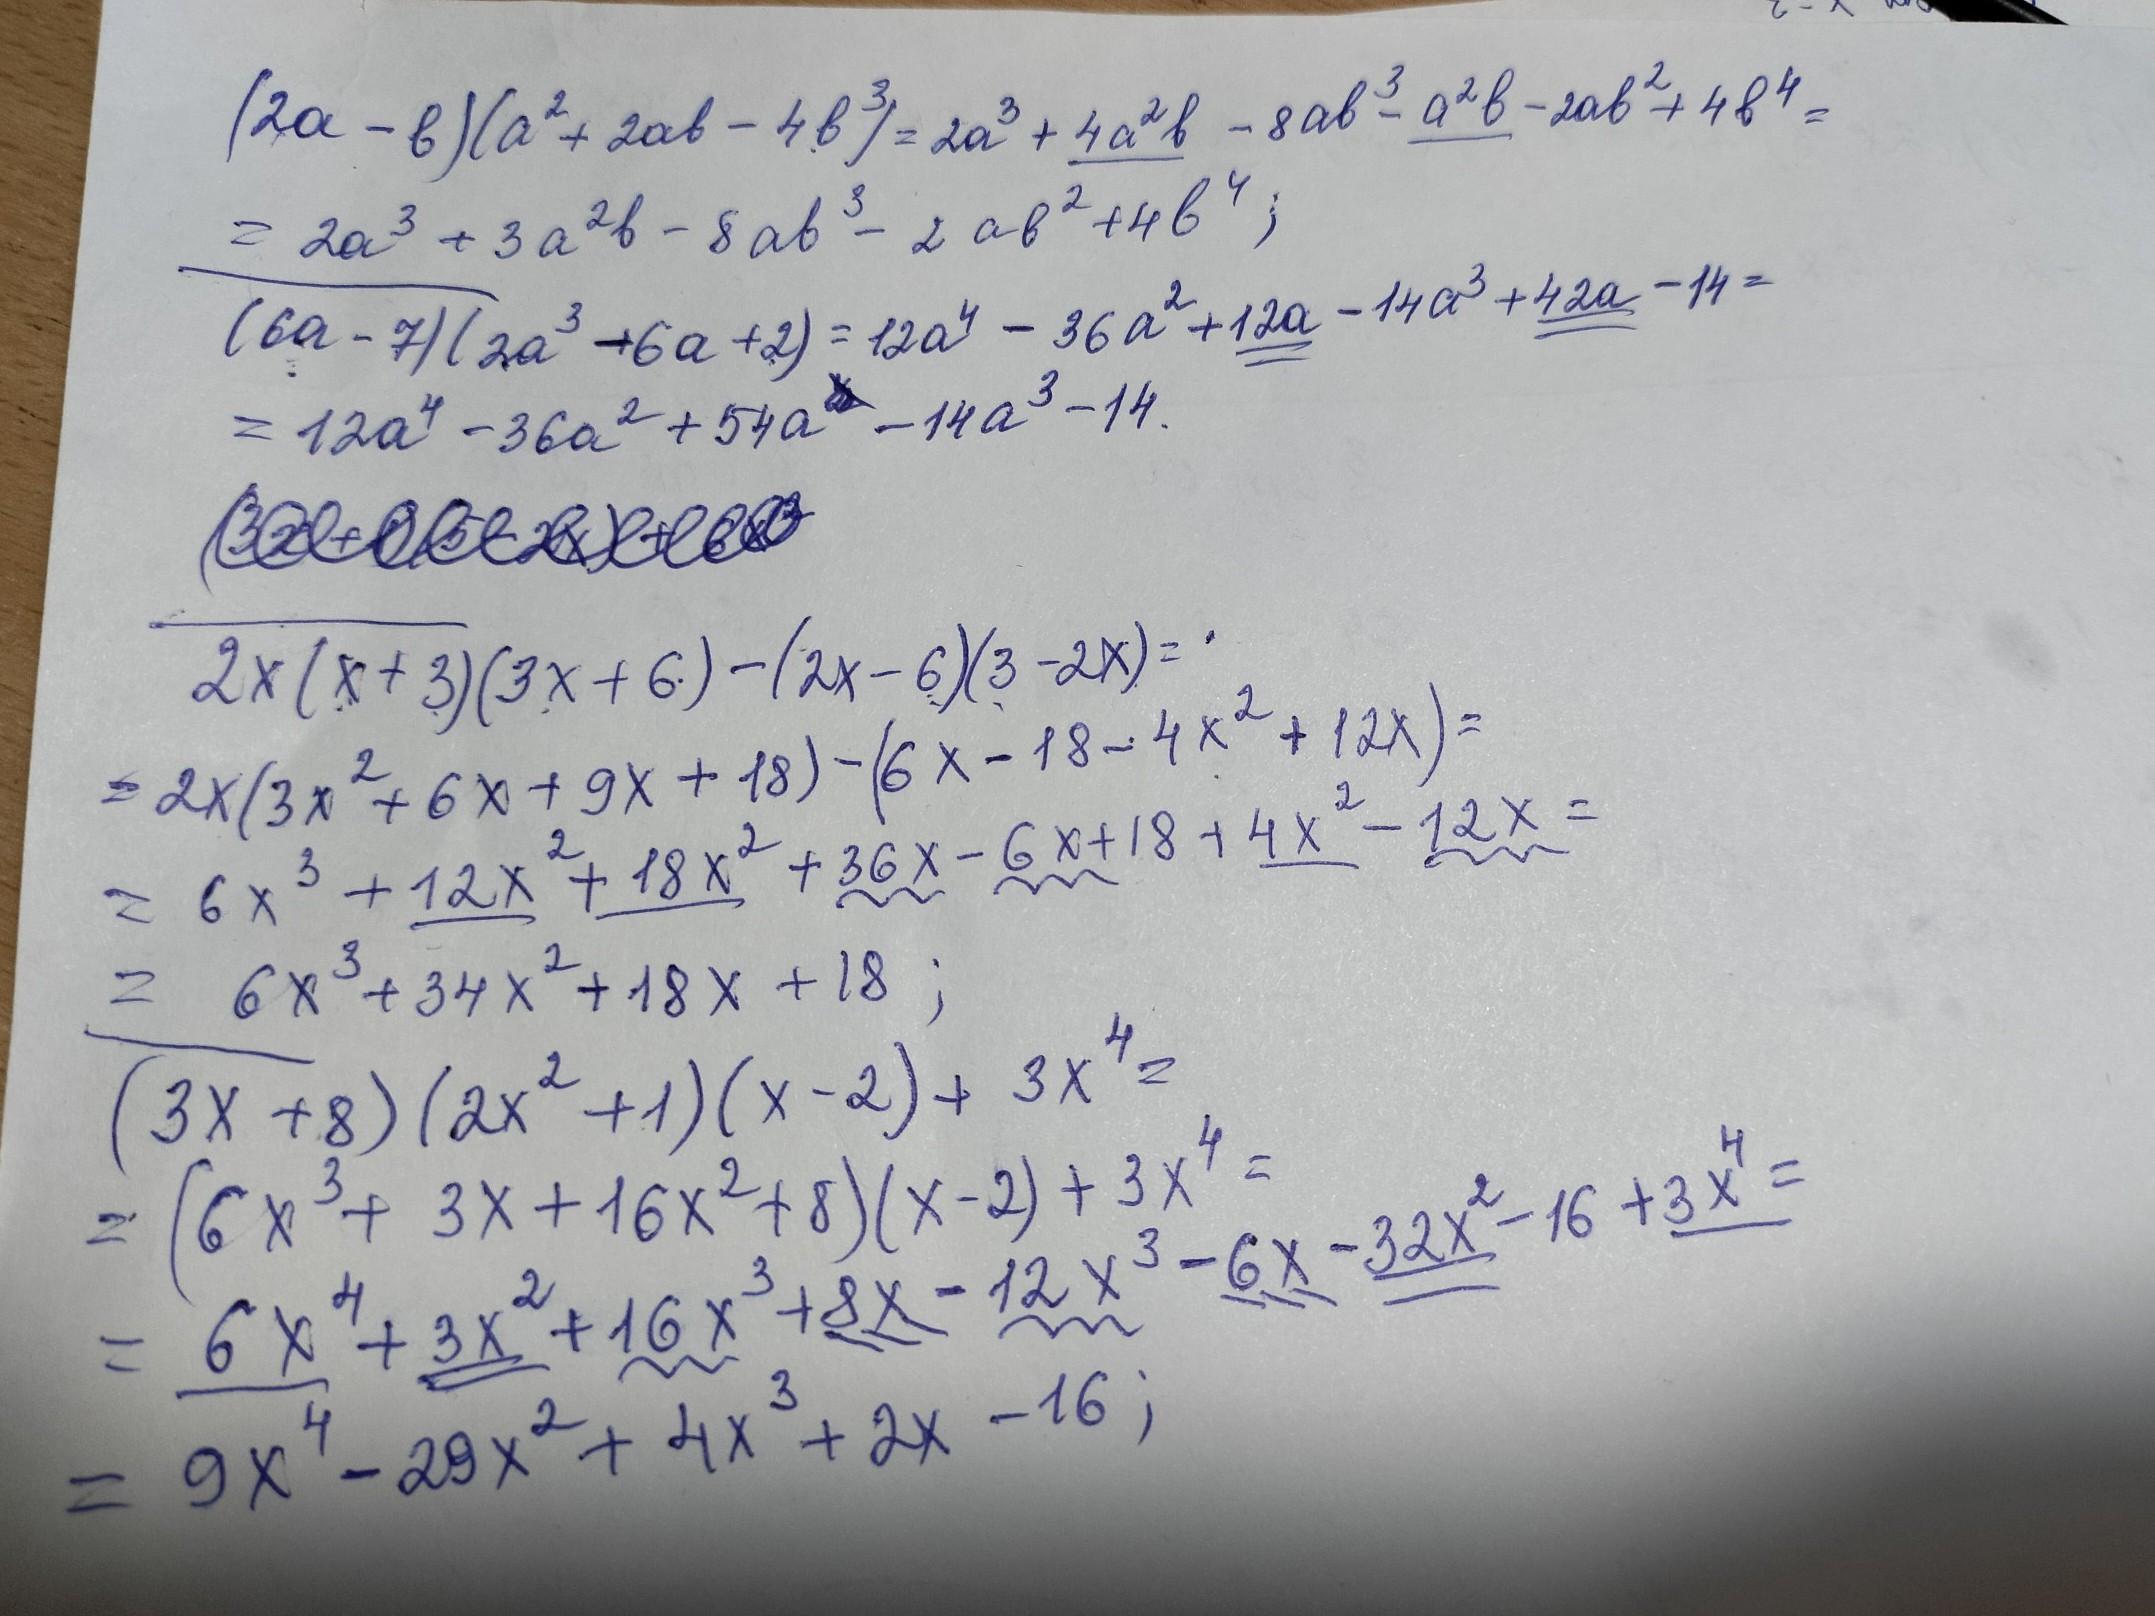 (2a - b)(a² + 2ab - 4b³) = 2a³ + 4a²b - 8ab³ - a²b - 2ab² + 4b⁴ =
= 2a³ + 3a²b - 8ab³ - 2ab² + 4b⁴;
(6a - 7)(2a³ - 6a + 2) = 12a⁴ - 36a² + 12a - 14a³ + 42a - 14 =
= 12a⁴ - 36a² + 54a - 14a³ - 14.
2x(x + 3)(3x + 6) - (2x - 6)(3 - 2x) =
= 2x(3x² + 6x + 9x + 18) - (6x - 18 - 4x² + 12x) =
= 6x³ + 12x² + 18x² + 36x - 6x + 18 + 4x² - 12x =
= 6x³ + 34x² + 18x + 18;
(3x + 8)(2x² + 1)(x - 2) + 3x⁴ =
= (6x³ + 3x + 16x² + 8)(x - 2) + 3x⁴ =
= 6x⁴ + 3x² + 16x³ + 8x - 12x³ - 6x - 32x² - 16 + 3x⁴ =
= 9x⁴ - 29x² + 4x³ + 2x - 16;